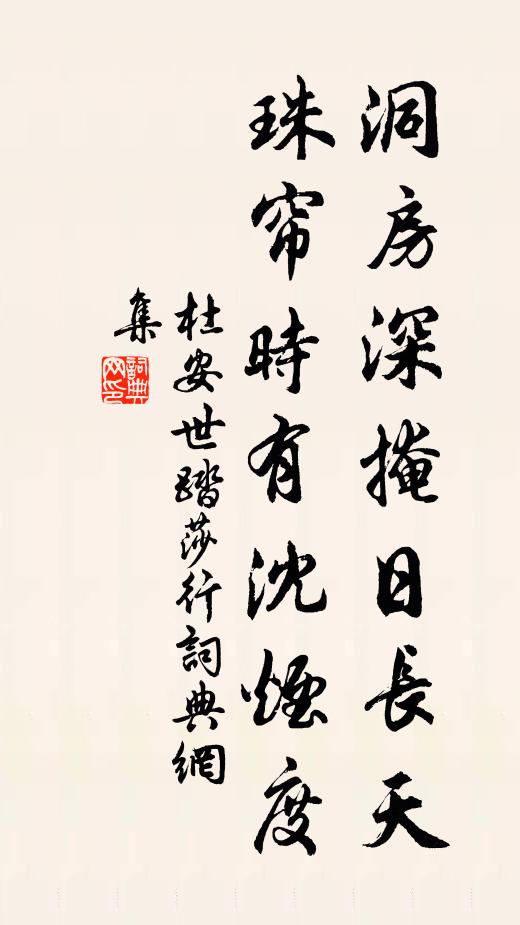 洞房深掩日長天
珠帘時有沈煙度
杜安世踏莎行詞典網
集
詞典网印